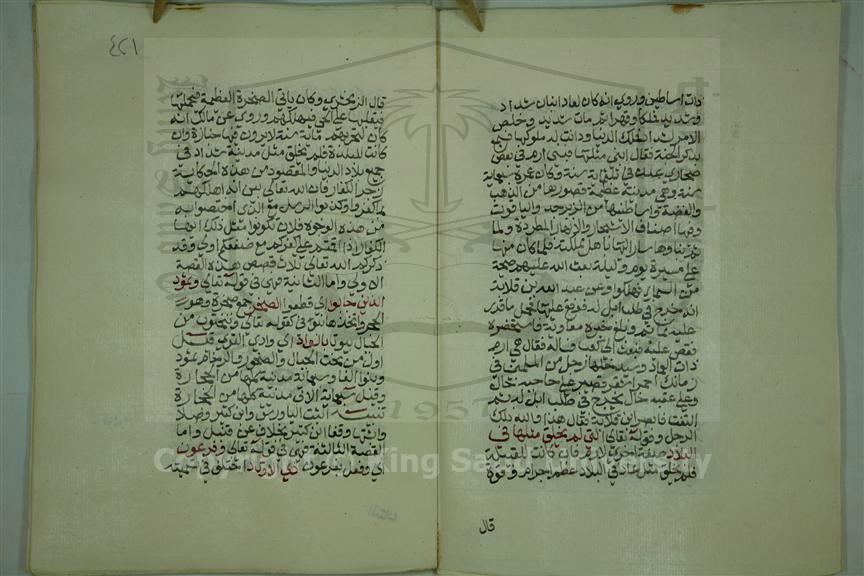 ذات اساطين وروى انه كان لعاد ابنان شداد
وشديد فملكا وقهرا ثم مات شديد وخلص
الامر لشداد فملك الدنيا ودانت له ملوكها فسمع
بذكر الجنة فقال ابنى مثلها فبنى ارم فى بعض
صحارى عدن فى ثلثماية سنة وكان عمره تسعماية
سنة وهى مدينة عظيمة قصورها من الذهب
والفضة واساطينها من الزبرجد والياقوت
وفيها اصناف الاشجار والانهار المطردة ولما
تم بناوها سار اليها باهل مملكته فلما كان منها
على مسيرة يوم وليلة بعث الله عليهم صيحة
من السماء فهلكوا وعن عبد الله بن قلابة
انه خرج فى طلب ابل له فوقع عليها فحمل ما قدر
عليه مما ثم وبلغ خبره معاوية فاستحضره
فقص عليه فبعث الى كعب فساله فقال هى ارم
ذات العماد وسيدخلها رجل من المسلمين فى
زمانك احمر اشقر قصير على حاجبه خال
وعلى عقبه خال يخرج فى طلب ابل له ثم
التفت فابصر ابن قلابة فقال هذا والله ذلك
الرجل وقوله تعالى التى لم يخلق مثلها فى
البلاد صفة اخرى لارم فان كانت للقبيلة
فلم يخلق مثل عاد فى البلاد عظم اجرام وقوة
قال
٤٢١
قال الزمخشرى وكان ياتى الصخرة العظيمة فيحملها
فيقلبها على الحى فيهلكهم وروى عن مالك انه
كان تمر بهم مائة سنة لا يرون فيها جنازة وان
كانت للبلدة فلم يخلق مثل مدينة شداد فى
جميع بلاد الدنيا والمقصود من هذه الحكاية
زجر الكفار فان الله تعالى بين انه اهلكهم
بما كفروا وكذبوا الرسل مع الذى اختصوا به
من هذه الوجوه فلان تكونوا مثل ذلك ايها
الكفار اذا اقمتم على كفركم مع ضعفكم اولى وقد
ذكر الله تعالى ثلاث قصص هذه القصة
الاولى واما الثانية فهى فى قوله تعالى وثمود
الذين جابوا اى قطعوا الصخر جمع صخرة وهو
الحجر واتخذوها بيوتا كقوله تعالى وتنحتون من
الجبال بيوتا بالواد اى وادى القرى قيل
اول من نحت الجبال والصخور والرخام ثمود
وبنوا الفا وسبعماية مدينة كلها من الحجارة
وقيل سبعماية الاف مدينة كلها من الحجارة
تنبيه اثبت الياء ورش وابن كثير وصلا
واثبتها وقفا ابن كثير بخلاف عن قنبل واما
القصة الثالثة فهى فى قوله تعالى وفرعون
اى وفعل بفرعون ذى الاوتاد اختلف فى تسميته
1957
Copyright © King Saud University